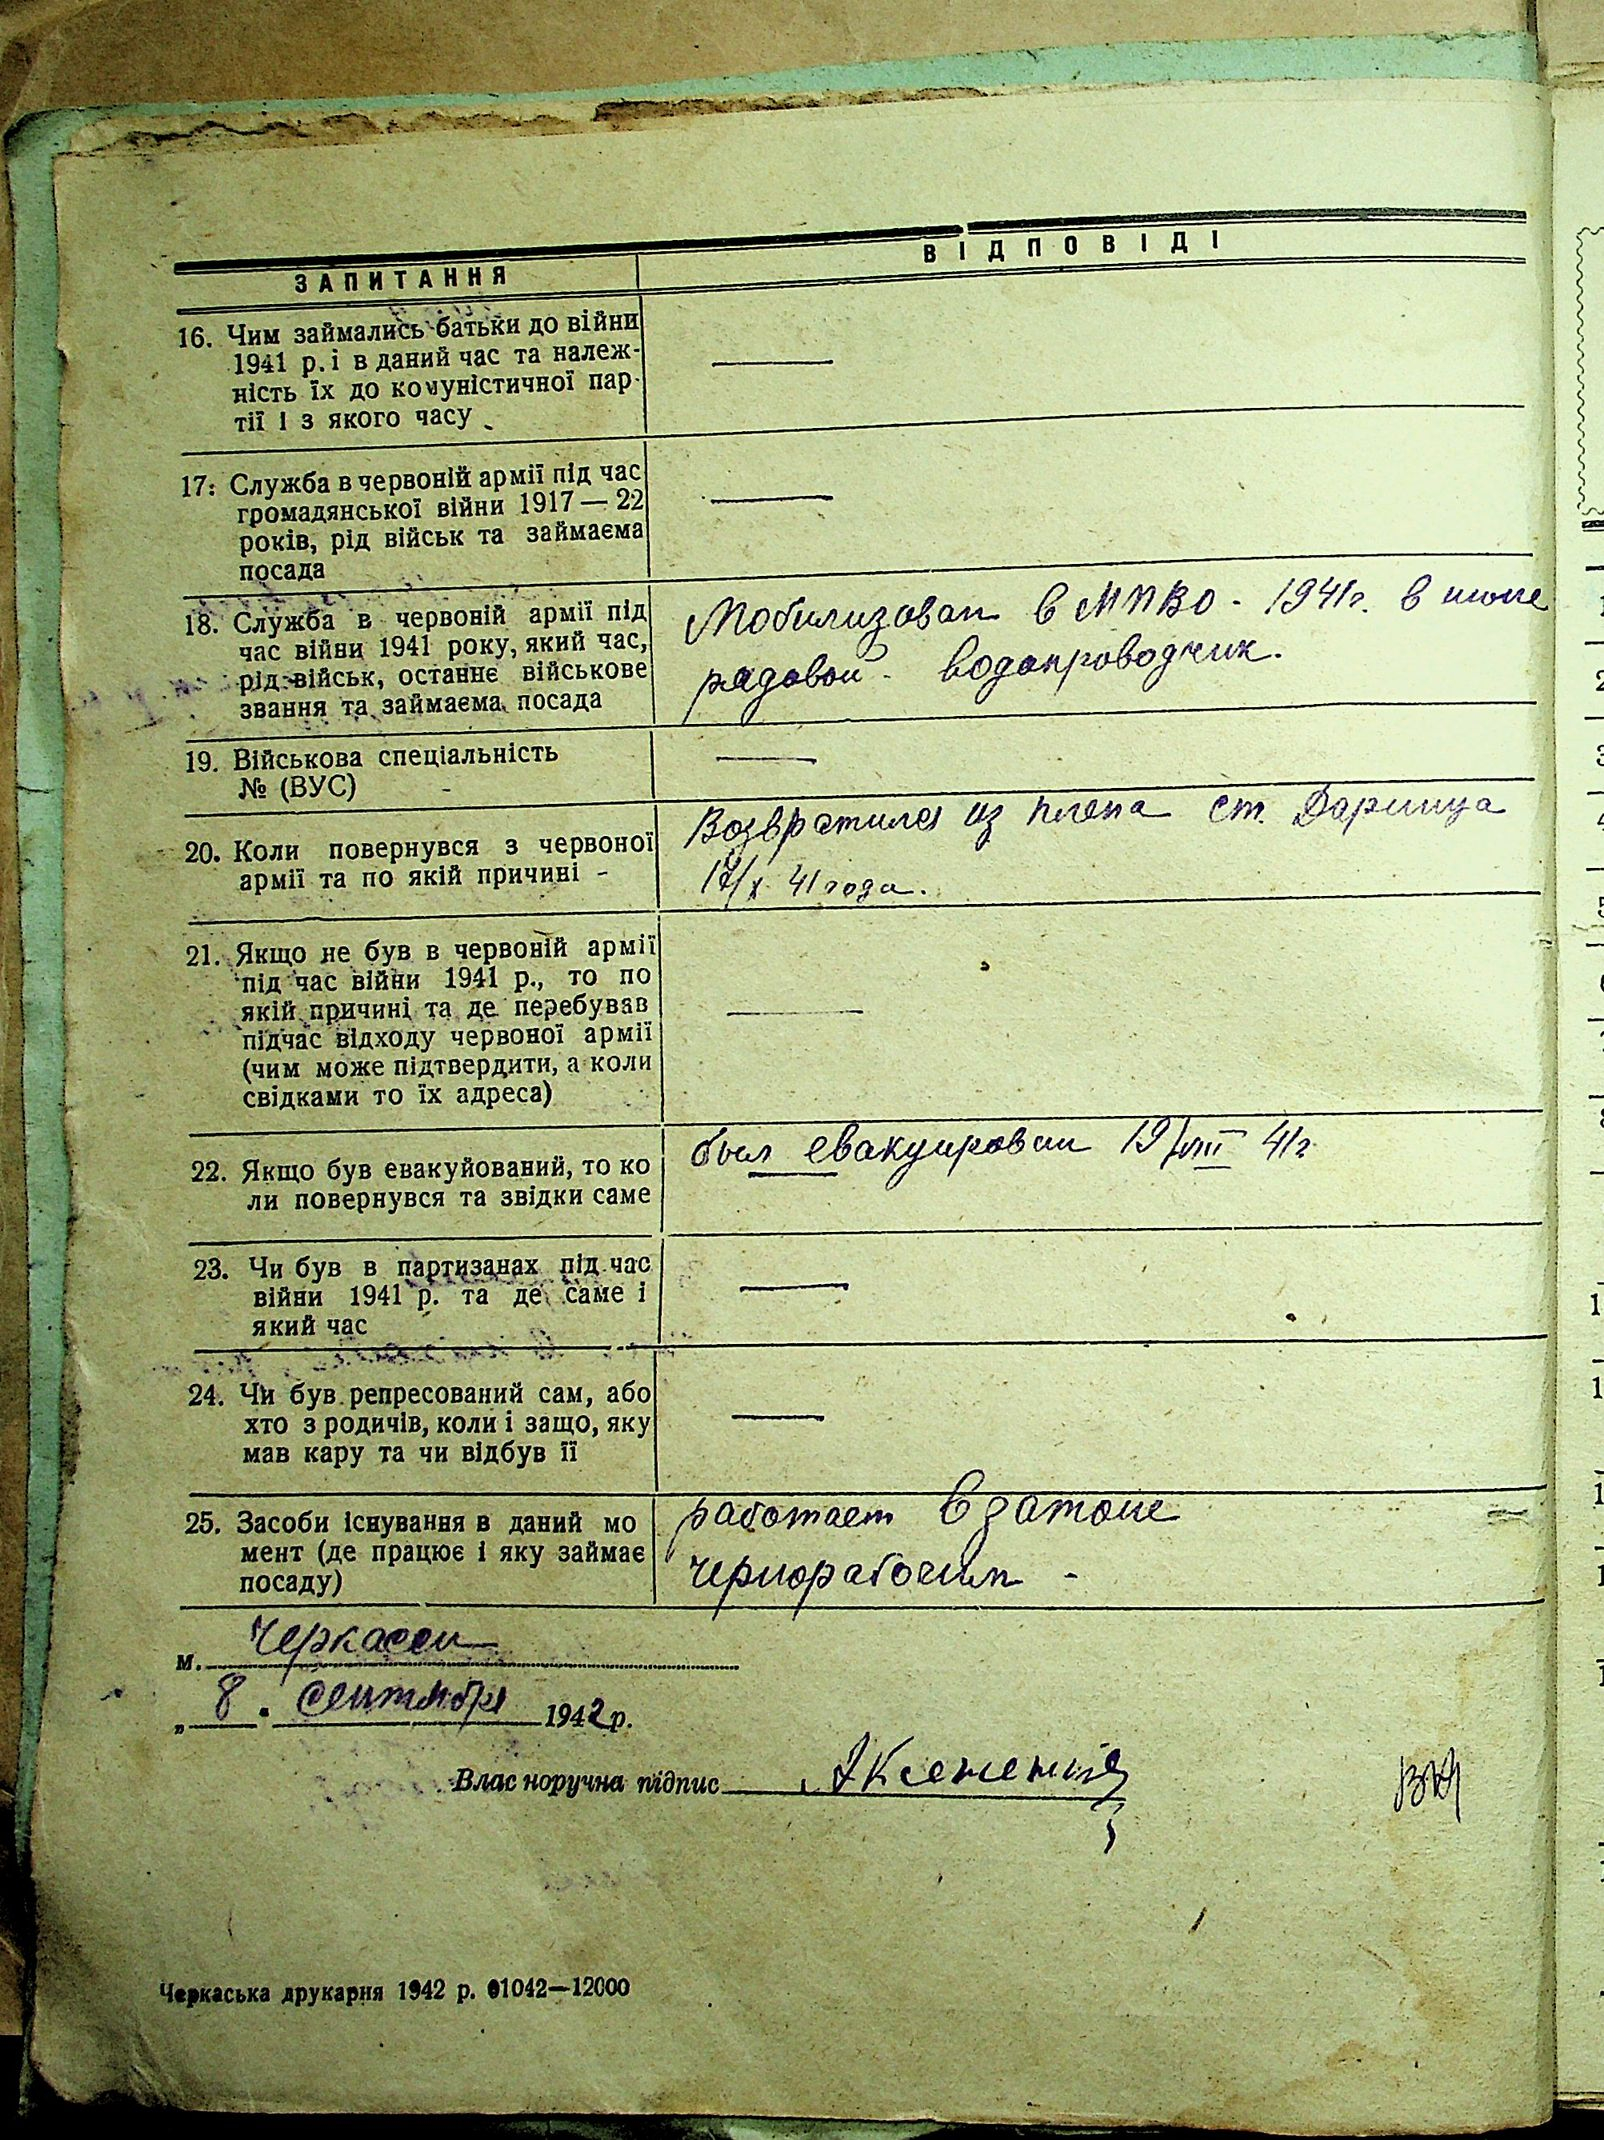 ЗАПИТАННЯ
ВІДПОВІДІ
16. Чим займались батьки до війни
1941 р. і в даний час та належ-
ність їх до комуністичної пар-
тії і з якого часу
17. Служба в червоній армії під час
громадянської війни 1917 — 22
років, рід військ та займаєма
посада
18. Служба в червоній армії під
час війни 1941 року, який час,
рід військ, останнє військове
звання та займаєма посада
Мобилизован в МПВО - 1941 г. в июле
рядовой - водопроводчик.
19. Військова спеціальність
№ (ВУС)
20. Коли повернувся з червоної
армії та по якій причині -
Возвратился из плена ст. Дарница
17/X 41 года.
21. Якщо не був в червоній армії
під час війни 1941 р., то по
якій причині та де перебував
підчас відходу червоної армії
(чим може підтвердити, а коли
свідками то їх адреса)
22. Якщо був евакуйований, то ко
ли повернувся та звідки саме
был евакуирован 19/VIII 41 г
23. Чи був в партизанах під час
війни 1941 р. та де саме і
який час
24. Чи був репресований сам, або
хто з родичів, коли і защо, яку
мав кару та чи відбув її
25. Засоби існування в даний мо
мент (де працює і яку займає
посаду)
работает в затоне
чернорабочим -
м. Черкассы
„ 8 " сентября 1942 р.
Власноручна підпис
Черкаська друкарня 1942 р. 01042—12000